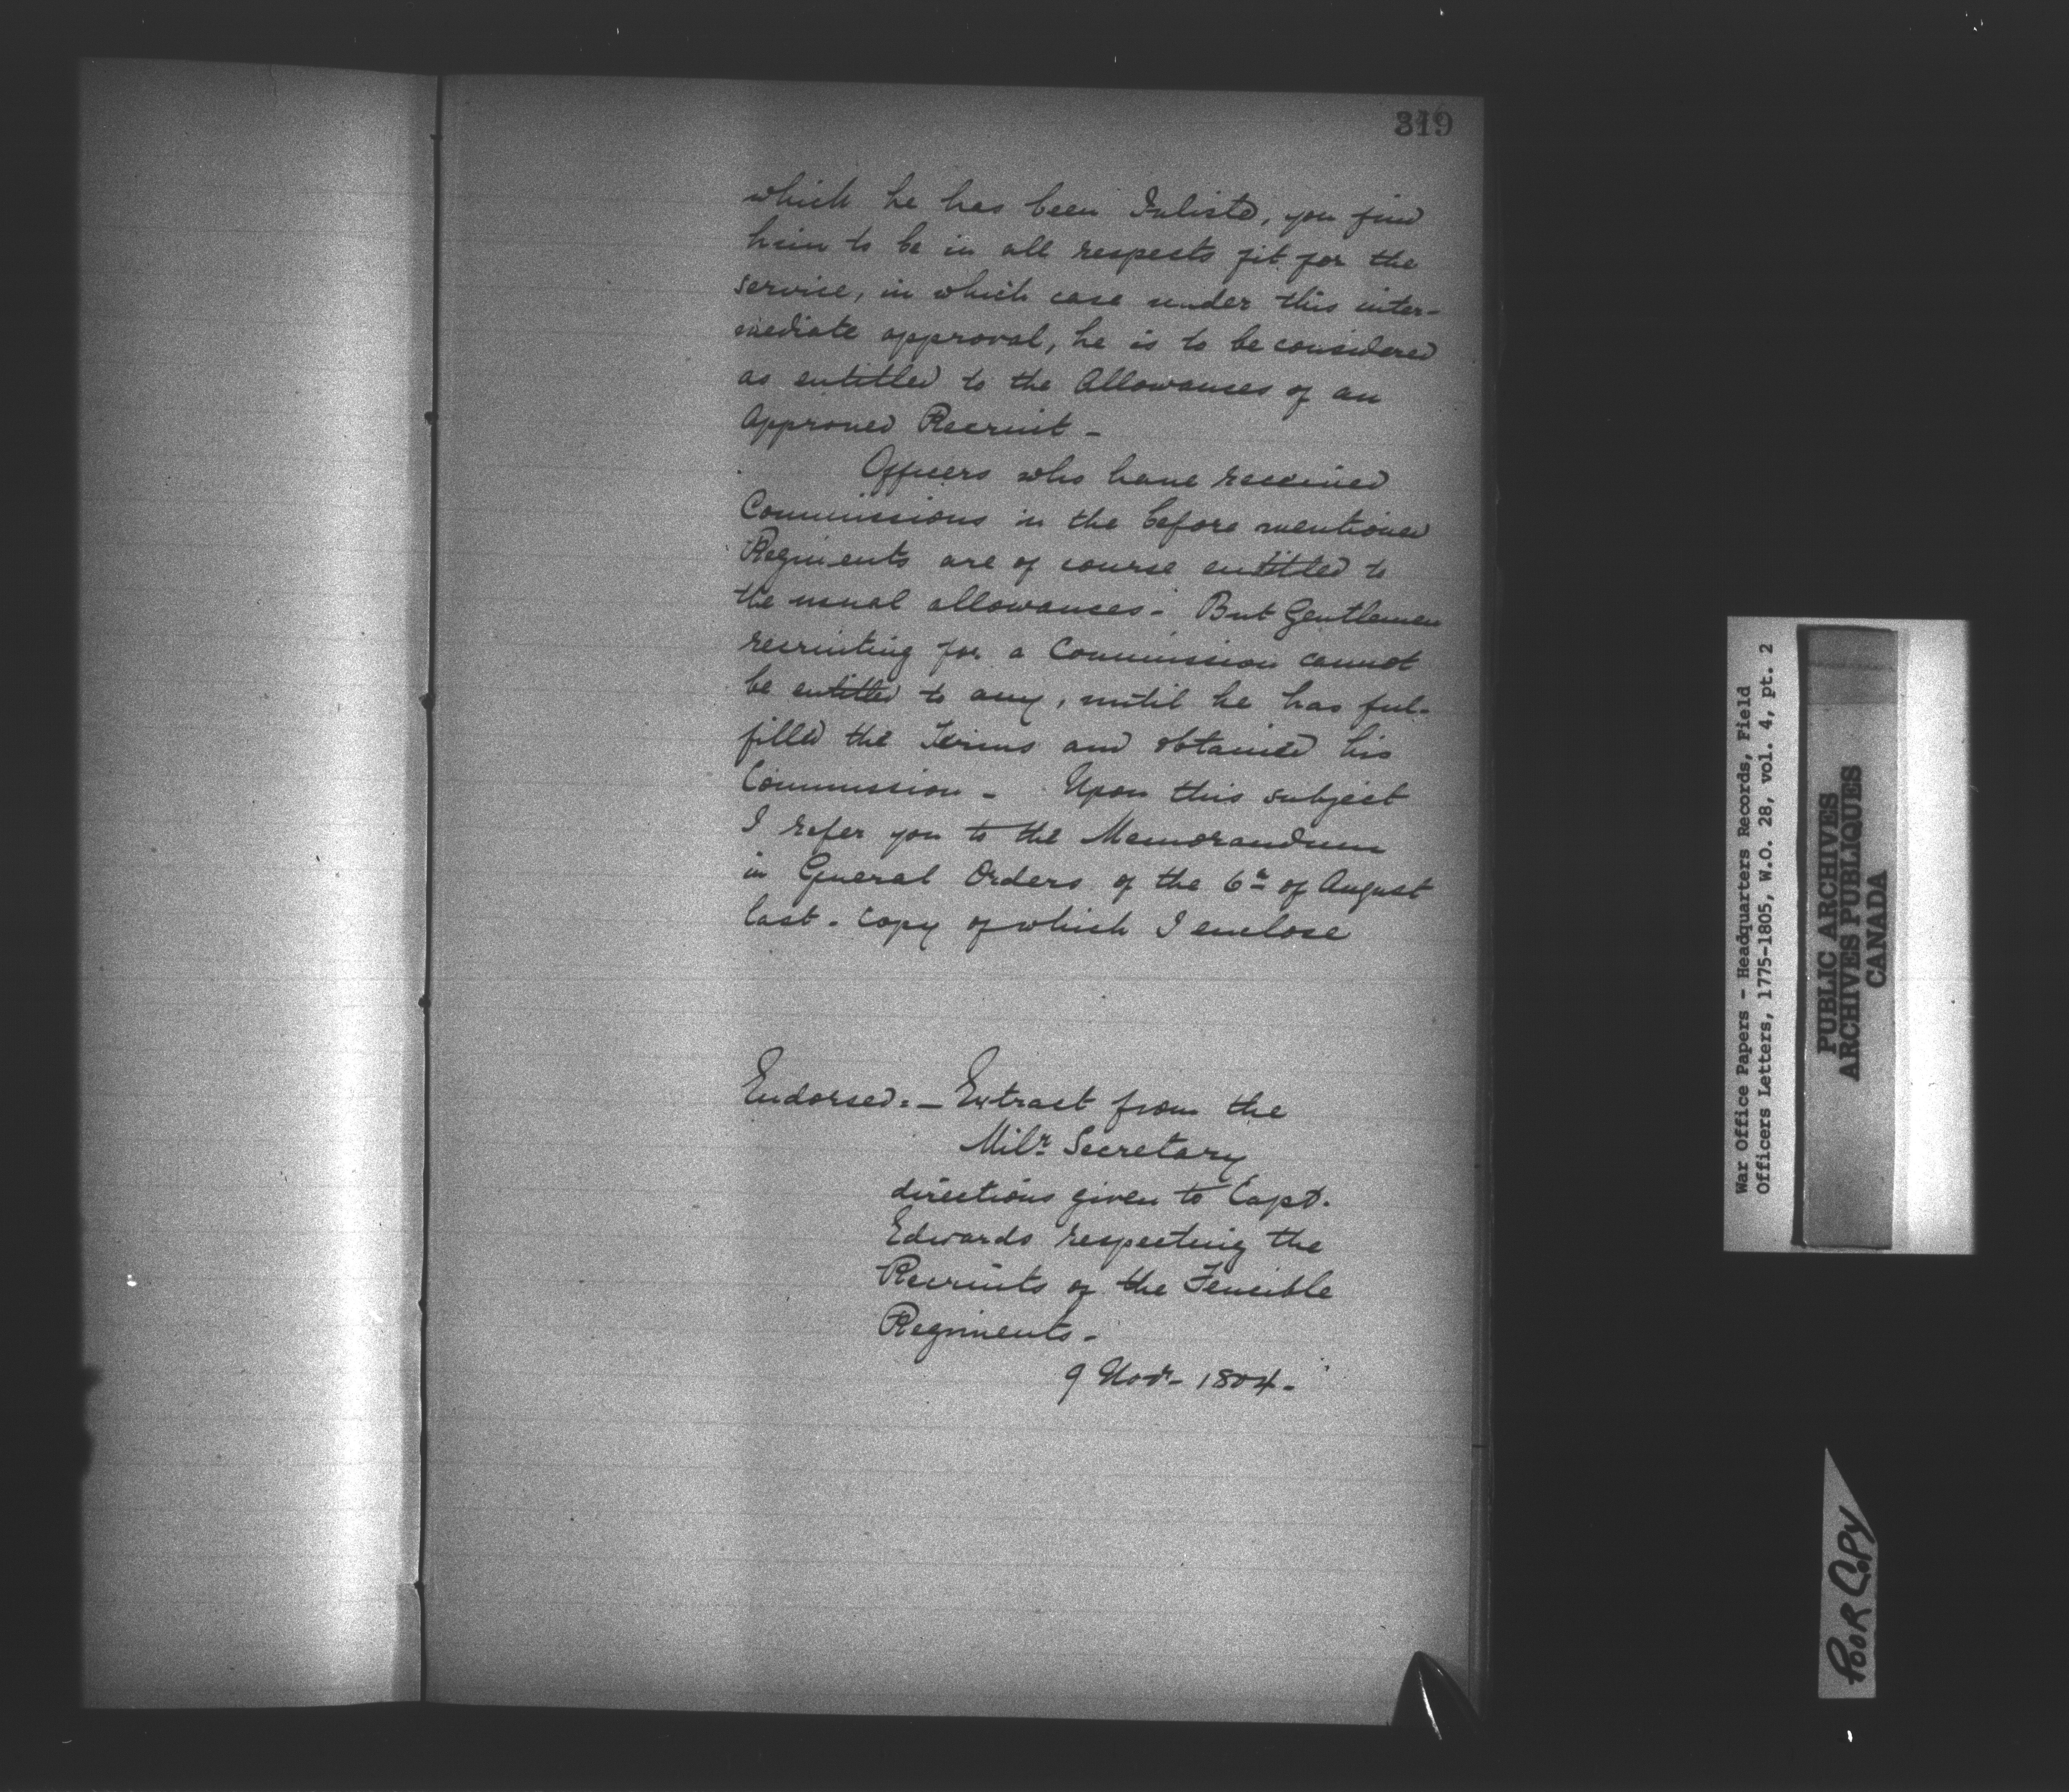 319
which he has been Inlisted, you find
him to be in all respects fit for the
service, in which case under this inter-
mediate approval, he is to be considered
as entitled to the Allowances of an
Approved Recruit -
Officers who have received
Commissions in the before mentioned
Regiments are of course entitled to
the usual allowances - But Gentlemen
recruiting for a Commission cannot
be entitled to any, until he has ful-
filled the Terms and obtained his
Commission - Upon this subject
I refer you to the Memorandum
in General Orders of the 6th of August
last - Copy of which I enclose
Endorsed: - Extract from the
Mily Secretary
directions given to Capt.
Edwards respecting the
Recruits of the Fencible
Regiments -
9 Novr - 1804 -
War Office Papers - Headquarters Records, Field
Officers Letters, 1775-1805, W.O. 28, vol. 4, pt. 2
PUBLIC ARCHIVES
ARCHIVES PUBLIQUES
CANADA
POOR COPY